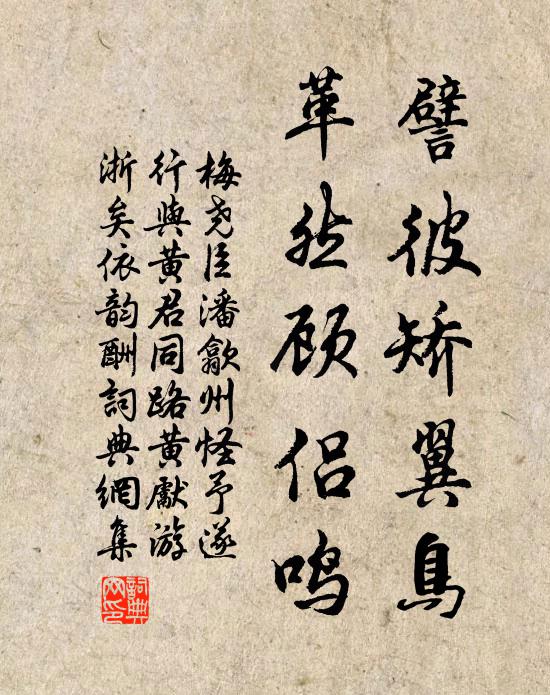 譬彼矫翼鳥
革然顾侣鸣
梅尧臣潘歙州怪予遂
行與黄君同路黄獻游
浙矣依韵酬詞典網集